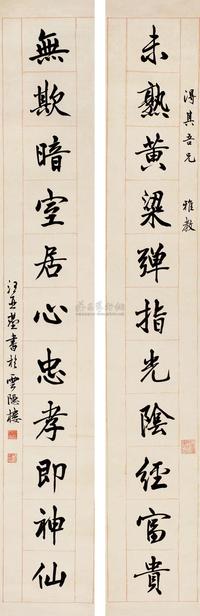 得其吾兄 雅教
未熟黄粱彈指光陰經富貴
無欺暗室居心忠孝即神仙
汪亞塵書於雲隱樓